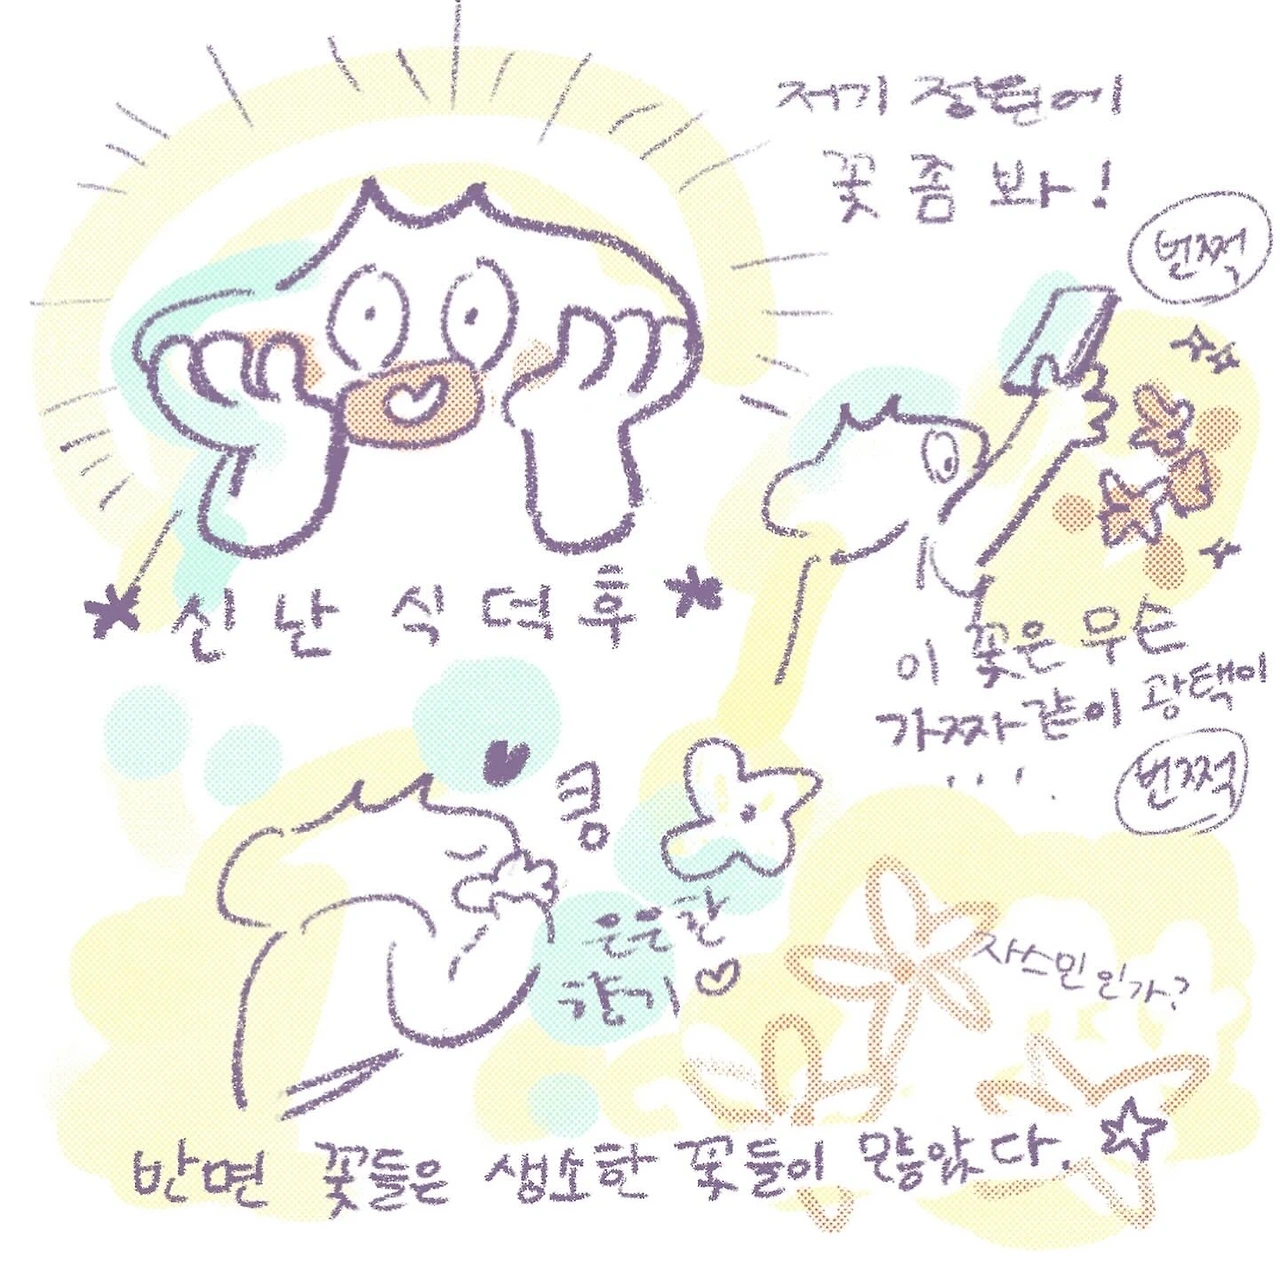 저기 정면에
꽃 좀 봐!
번쩍
신난 식덕후
이 꽃은 무슨
가짜같이 광택이
....
번쩍
킁
은은한
향기♡
자스민인가?
반면 꽃들은 생소한 꽃들이 많았다.